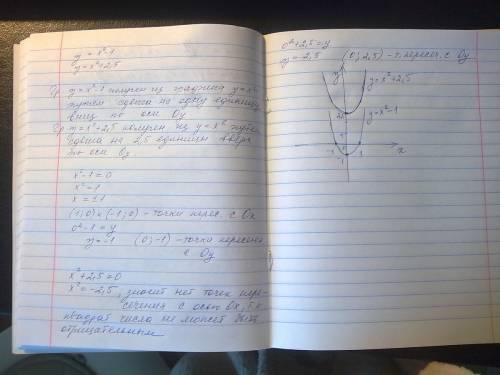 y = x²-1
y = x²+2,5
Гр. y = x²-1 получен из графика y = x²
путём сдвига на одну единицу
вниз по оси Oy
Гр. y = x²+2,5 получен из y = x² путём
сдвига на 2,5 единицы вверх
по оси Ox
x²-1=0
x²=1
x=±1
(1;0) и (-1;0) - точки перес. с Ox
0²-1=y
y=-1 (0;-1) - точка пересеч.
с Oy
x²+2,5=0
x²=-2,5, значит нет точек пере-
сечения с осью Ox, т.к
квадрат числа не может быть
отрицательным
0²+2,5=y
y=-2,5 (0; 2,5) - т. пересеч. с Oy
y=x²+2,5
y=x²-1
-1 1 x
-1